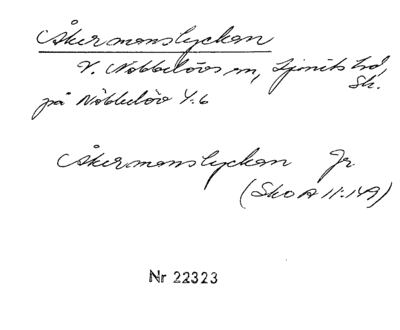 Åkermanslyckan
V. Nöbbelövs sn, Ljunits hd,
Sk.
på Nöbbelöv 4:6
Åkermanslyckan Jr
(SkoA 11:149)
Nr 22323